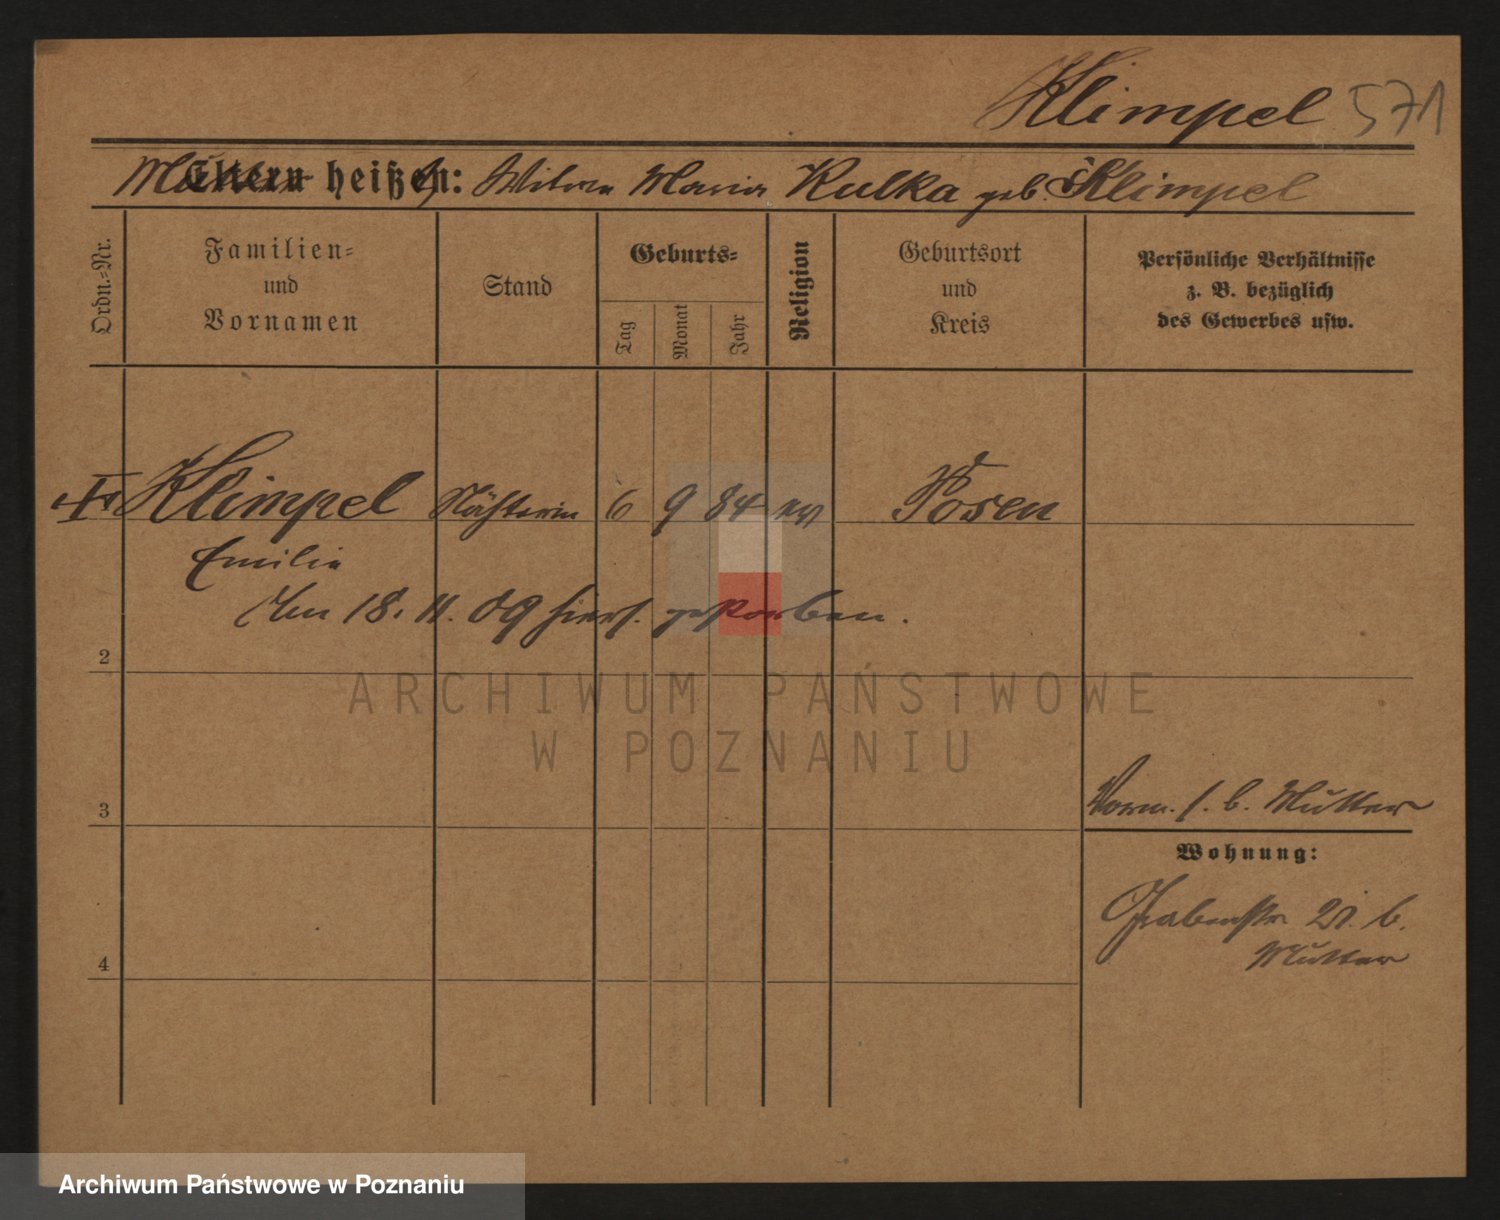 Klimpel 571
Mutter heißt: Witwe Maria Kulka geb. Klimpel
Ordn.-Nr.
Familien-
und
Vornamen
Stand
Geburts-
Tag
Monat
Jahr
Religion
Geburtsort
und
Kreis
Persönliche Verhältnisse
z. B. bezüglich
des Gewerbes usw.
Klimpel Nähterin 6 9 84 Posen
Emilie
Am 18. 11. 09 hiers. gestorben.
2
3
4
Vorm. s. b. Mutter
Wohnung:
Grabenstr 21. b.
Mutter
ARCHIWUM PAŃSTWOWE
W POZNANIU
Archiwum Państwowe w Poznaniu